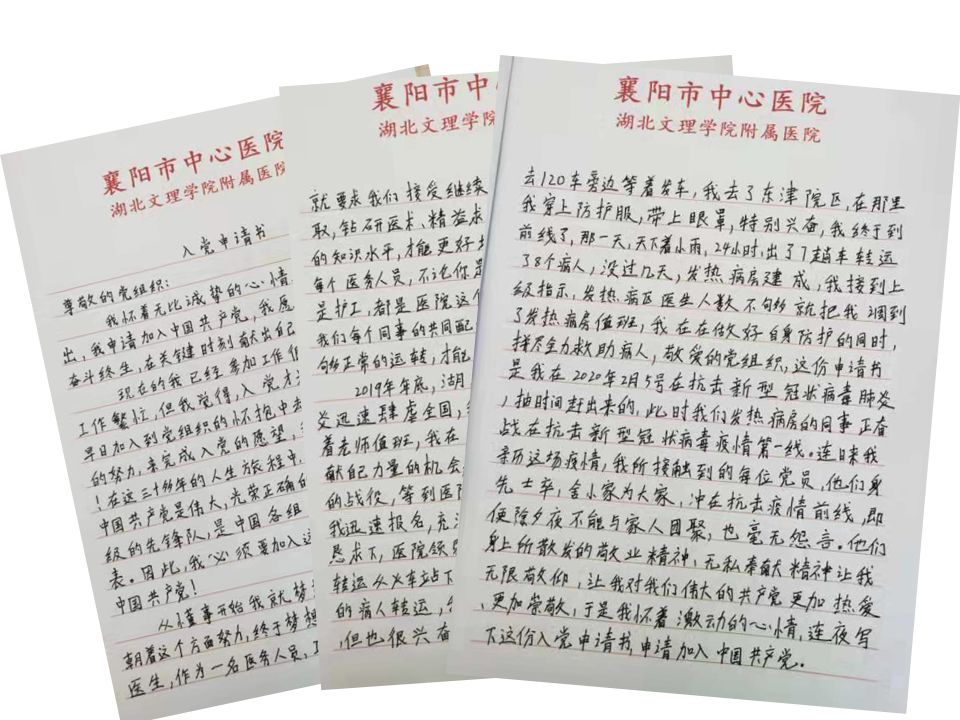 襄阳市中心医院
湖北文理学院附属医院
入党申请书
尊敬的党组织:
我怀着无比诚挚的心情
出,我申请加入中国共产党,我愿
奋斗终生,在关键时刻献出自己
现在的我已经参加工作
工作繁忙,但我觉得,入党才
早日加入到党组织的怀抱中去
的努力,来完成入党的愿望,
!在这三十多年的人生旅程中,
中国共产党是伟大,光荣正确的
级的先锋队,是中国各组
表。因此,我必须要加入这
中国共产党!
从懂事开始我就梦想
朝着这个方面努力,终于梦想
医生,作为一名医务人员,工
襄阳市中
湖北文理学院
就要求我们接受继续
取,钻研医术,精益求
的知识水平,才能更好
每个医务人员,不论你是
是护工,都是医院这个
我们每个同事的共同配
够正常的运转,才能
2019年年底,湖
炎迅速肆虐全国,
着老师值班,我在
献自己力量的机会
的战役,等到医院
我迅速报名,充
恳求下,医院领导
转运从火车站下
的病人转运,
,但也很兴奋
襄阳市中心医院
湖北文理学院附属医院
去120车旁边等着发车,我去了东津院区,在那里
我穿上防护服,带上眼罩,特别兴奋,我终于到
前线了,那一天,天下着小雨,24小时,出了7趟车转运
了8个病人,没过几天,发热病房建成,我接到上
级指示,发热病区医生人数不够就把我调到
了发热病房值班,我在在做好自身防护的同时,
拼尽全力救助病人,敬爱的党组织,这份申请书
是我在2020年2月5号在抗击新型冠状病毒肺炎
,抽时间赶出来的,此时我们发热病房的同事正奋
战在抗击新型冠状病毒疫情第一线。连日来我
亲历这场疫情,我所接触到的每位党员,他们身
先士卒,舍小家为大家,冲在抗击疫情前线,即
使除夕夜不能与家人团聚,也毫无怨言。他们
身上所散发的敬业精神,无私奉献精神让我
无限敬仰,让我对我们伟大的共产党更加热爱
、更加崇敬,于是我怀着激动的心情,连夜写
下这份入党申请书,申请加入中国共产党。